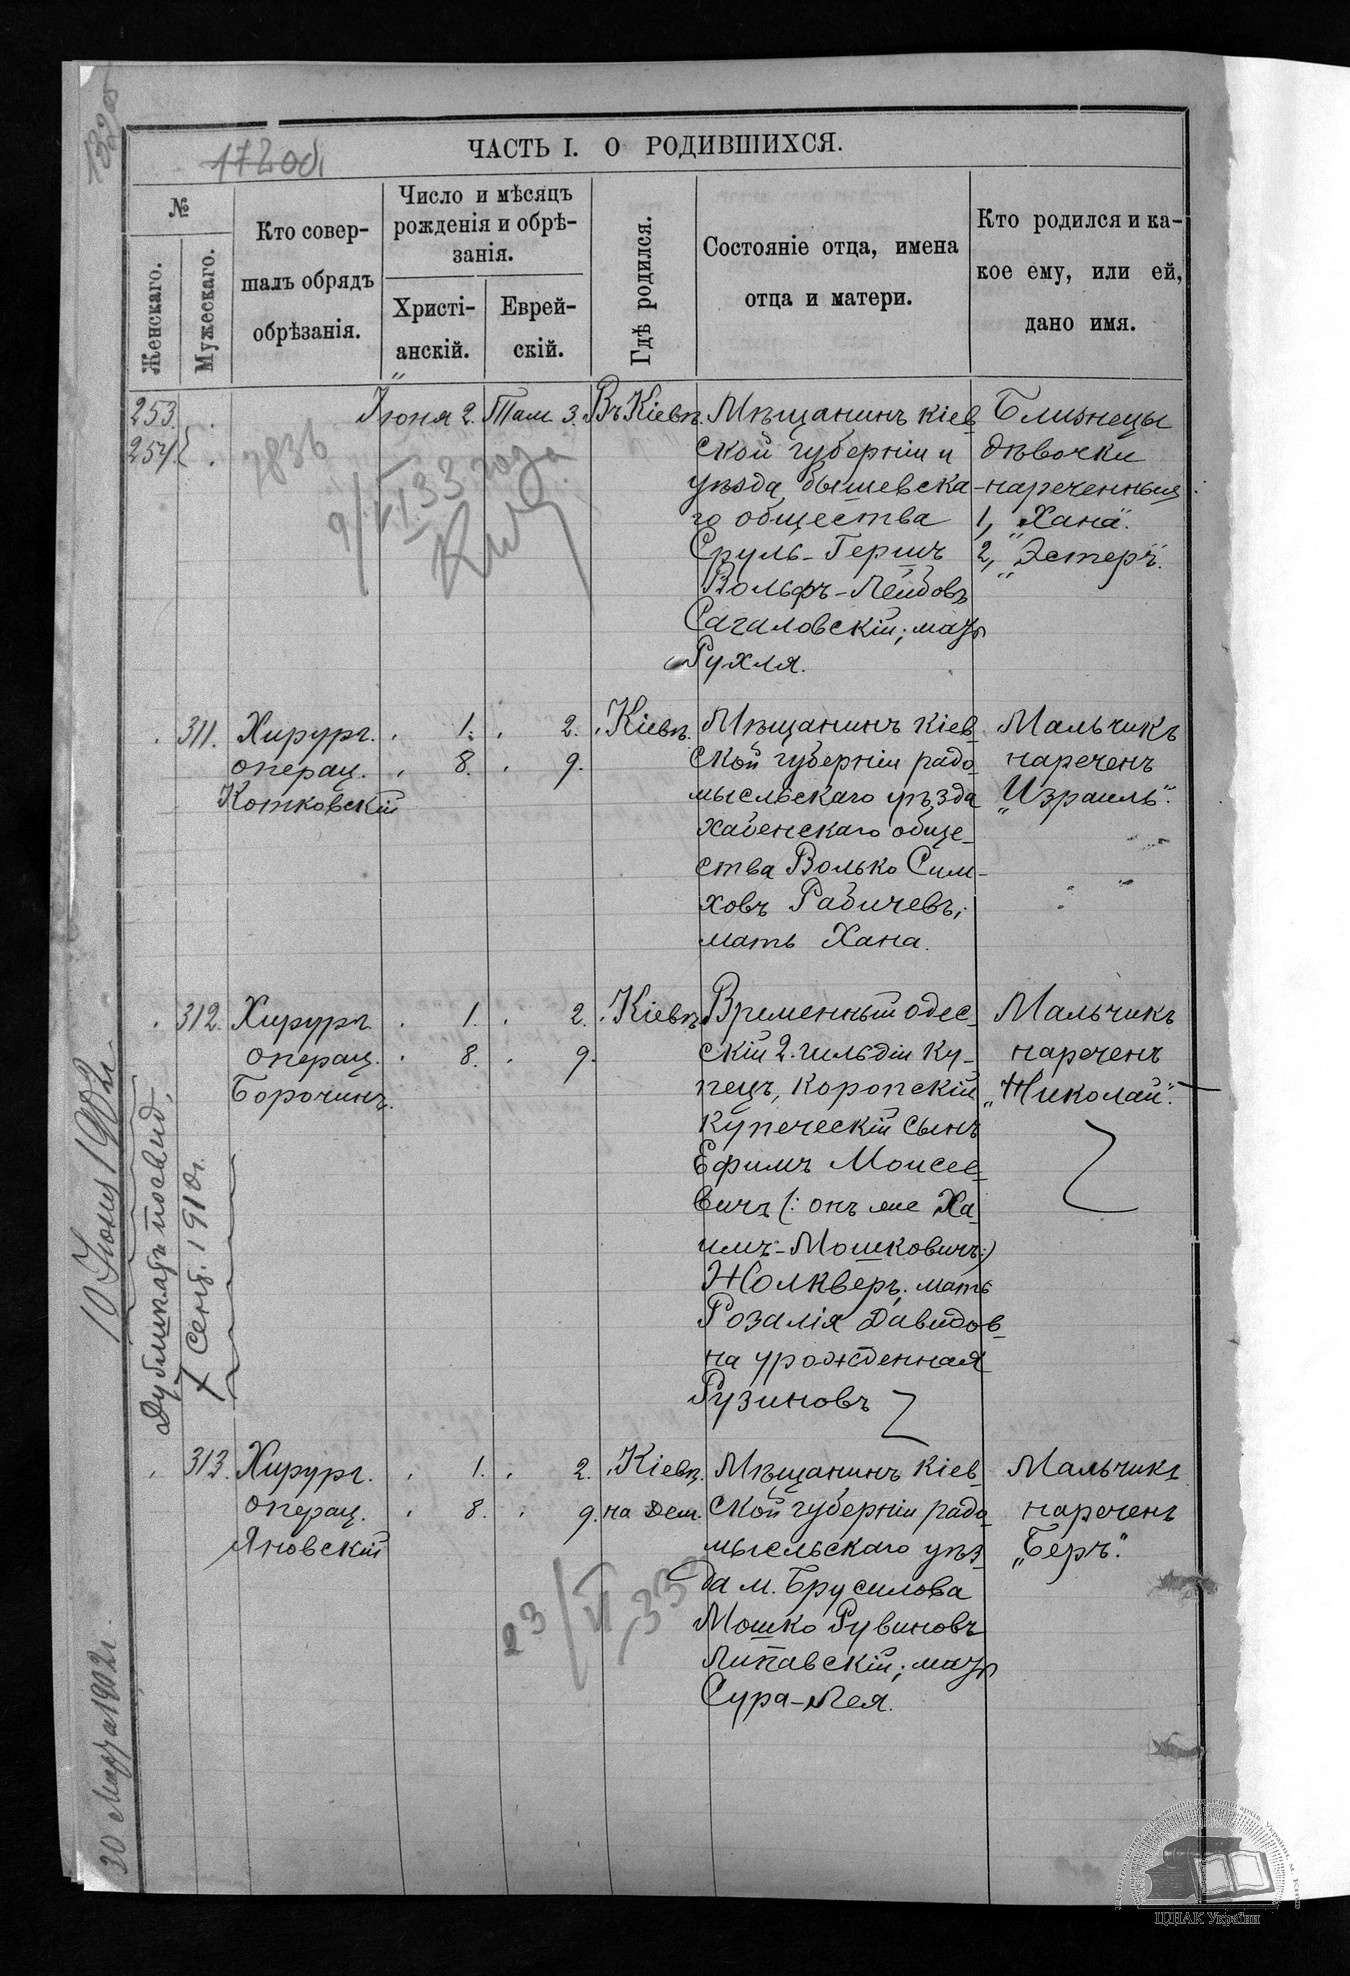 172об
ЧАСТЬ I. О РОДИВШИХСЯ.
№
Женскаго.
Мужескаго.
Кто совер-
шалъ обрядъ
обрѣзанія.
Число и мѣсяцъ
рожденія и обрѣ-
занія.
Христі-
анскій.
Еврей-
скій.
Гдѣ родился.
Состояніе отца, имена
отца и матери.
Кто родился и ка-
кое ему, или ей,
дано имя.
253.
254.
Іюня 2.
Там 3.
Въ Кіевѣ.
Мѣщанинъ кіев-
ской губерніи и
уѣзда бышевска-
го общества
Сруль-Гершъ
Вольфъ-Лейбовъ
Сагаловскій; мать
Рухля.
Близнецы
дѣвочки
нареченныя
1, „Хана“.
2, „Эстеръ“.
7836
9/VI 33 года
311.
Хирург.
операц.
Котковскій
1.
8.
2.
9.
Кіевѣ.
Мѣщанинъ Кіев-
ской губерніи радо-
мысльскаго уѣзда
хабенскаго обще-
ства Волько Сим-
ховъ Рабичевъ;
мать Хана.
Мальчикъ
нареченъ
„Израиль“.
312.
Хирург
операц.
Борочинъ.
1.
8.
2.
9.
Кіевѣ
Временный одес-
скій 2. гильдіи ку-
пецъ, коропскій
купеческій сынъ
Ефимъ Моисее-
вичъ (: онъ же Ха-
имъ-Мошковичъ:)
Жолкверъ, мать
Розалія Давидов-
на урожденная
Рузиновъ
Мальчикъ
нареченъ
„Николай“.
313.
Хирург.
операц.
Яновскій
1.
8.
2.
9.
Кіевѣ.
на Дем.
Мѣщанинъ Кіев
ской губерніи радо-
мысльскаго уѣз-
да м. Брусилова
Мошко Рувиновъ
Липавскій; мать
Сура-Лея.
Мальчикъ
нареченъ
„Беръ“.
23/VI 33
10 Іюня 1902 г.
Дубликатъ
7 Сент. 1910 г.
30 Марта 1902 г.
ЦДІАК України